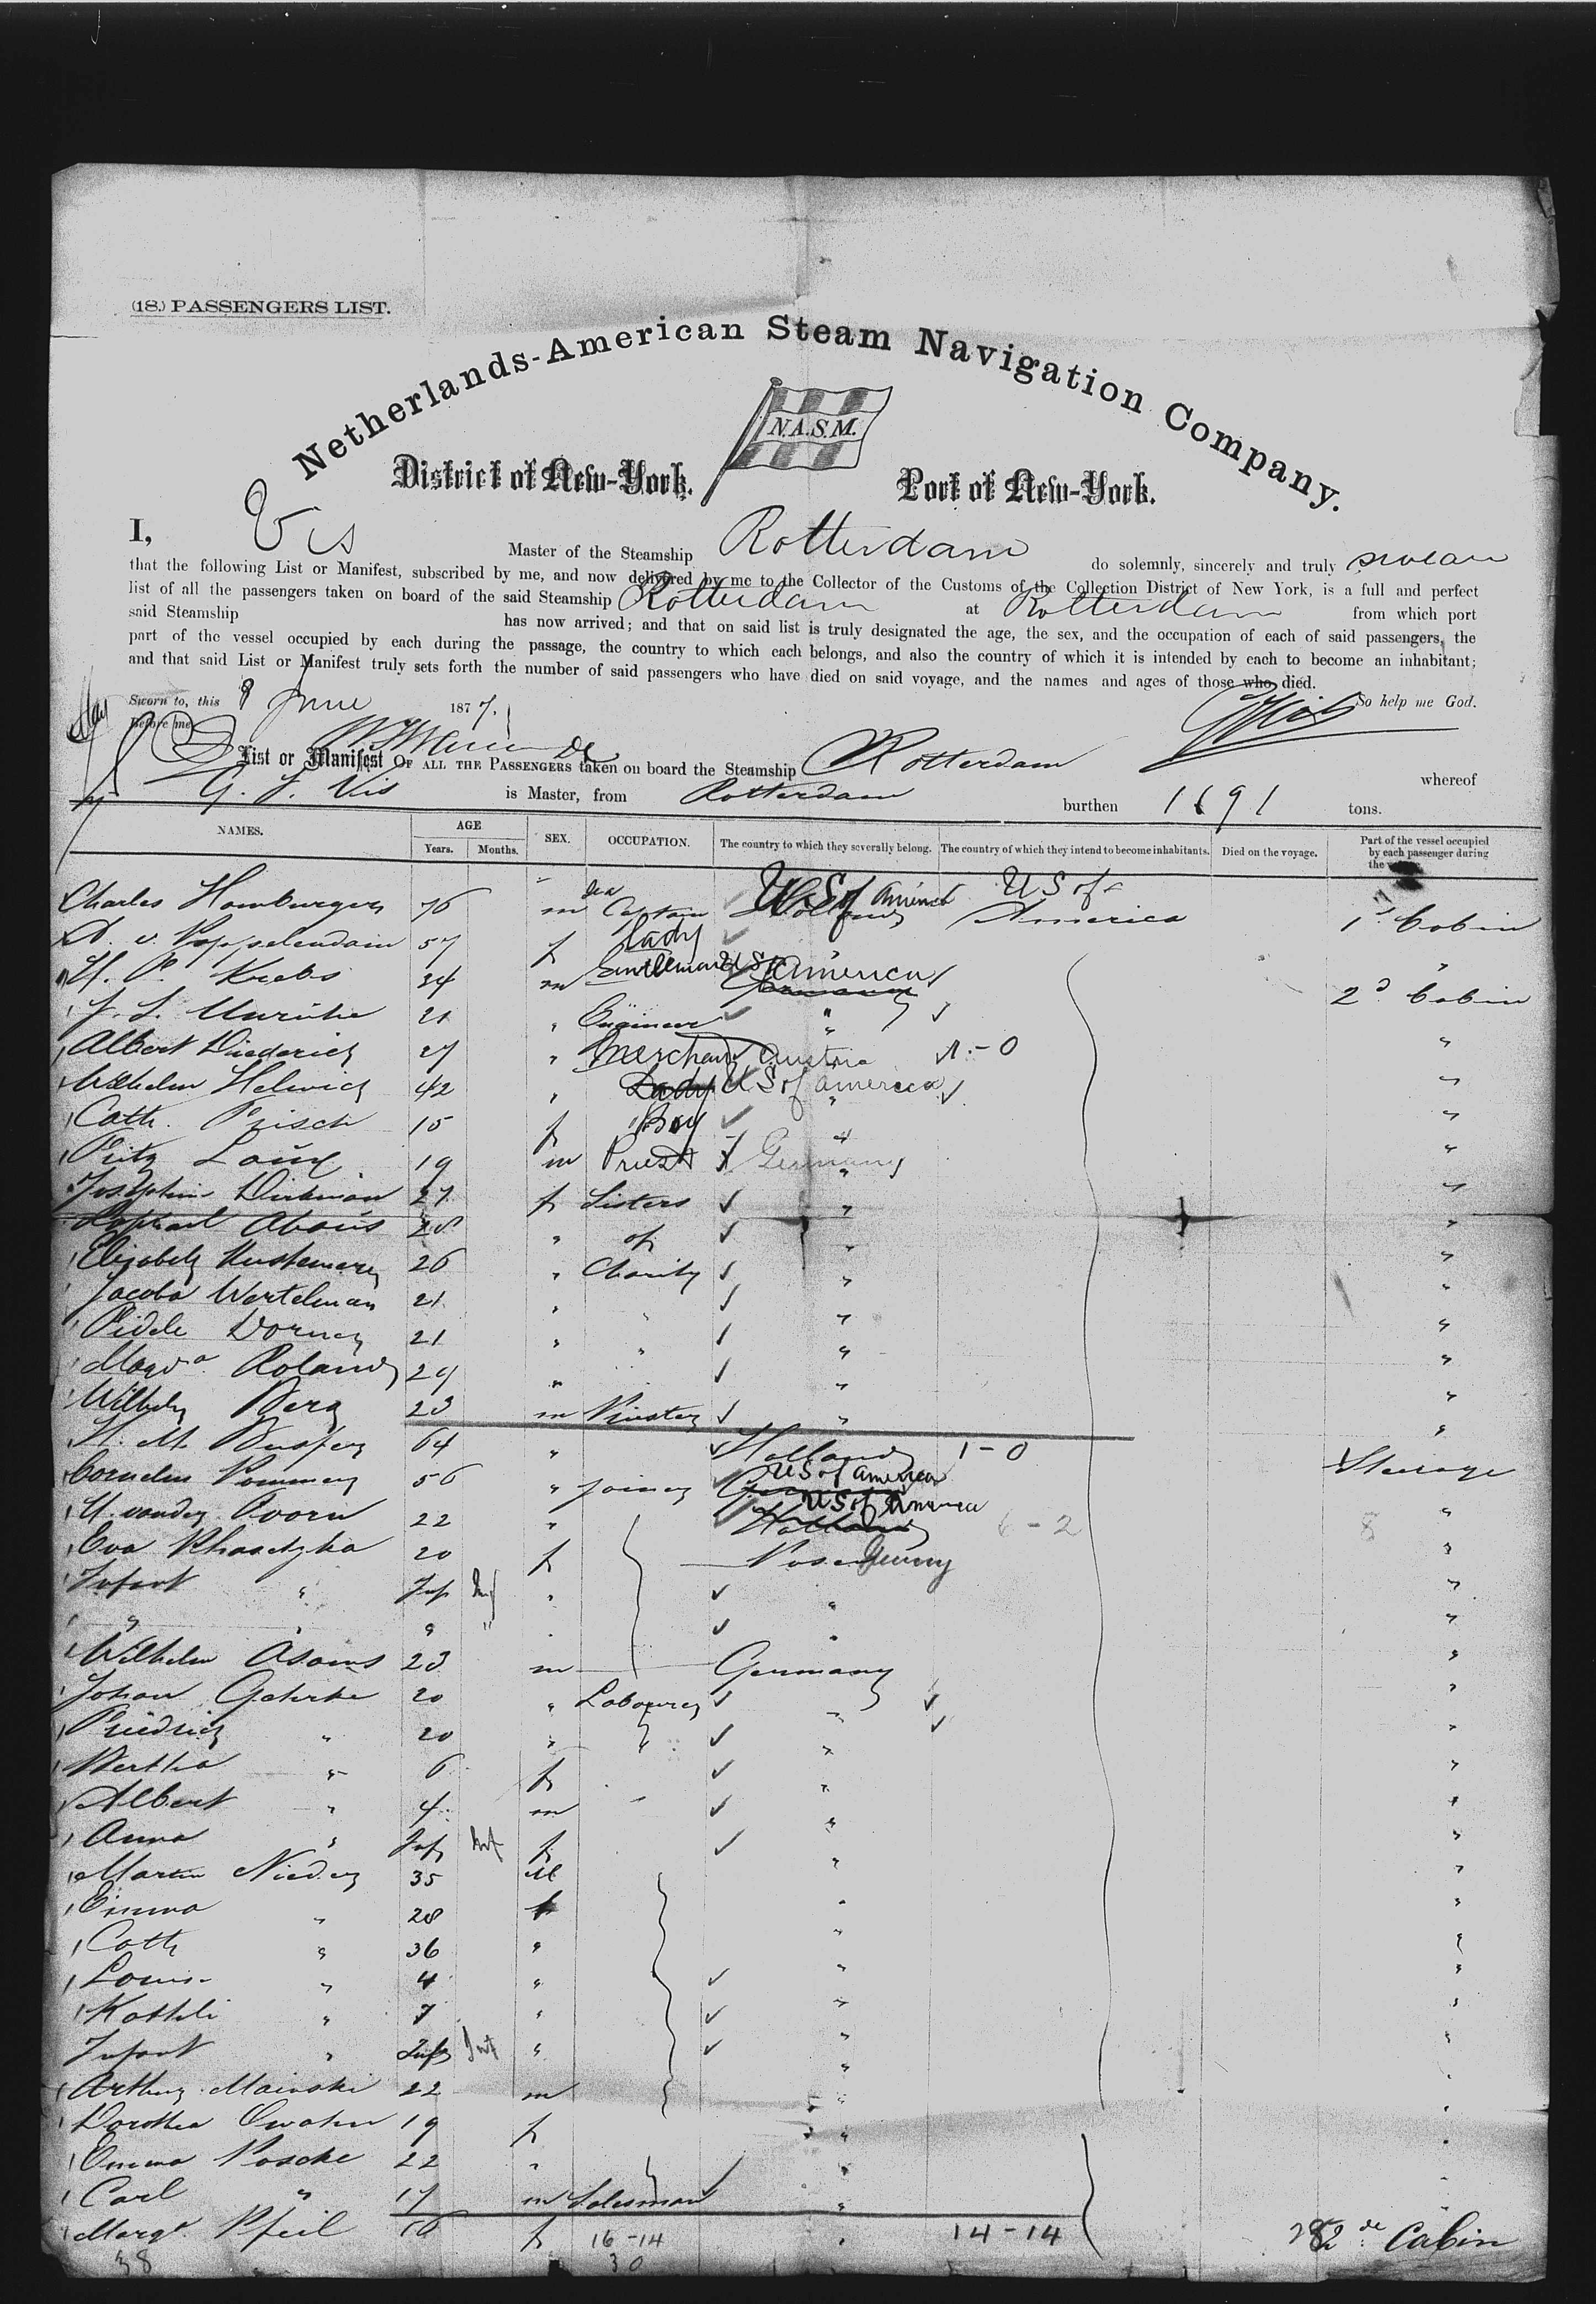 (18.) PASSENGERS LIST.
Netherlands-American Steam Navigation Company.
N.A.S.M.
District of New-York. Port of New-York.
I, Vis Master of the Steamship Rotterdam do solemnly, sincerely and truly swear
that the following List or Manifest, subscribed by me, and now delivered by me to the Collector of the Customs of the Collection District of New York, is a full and perfect
list of all the passengers taken on board of the said Steamship Rotterdam at Rotterdam from which port
said Steamship has now arrived; and that on said list is truly designated the age, the sex, and the occupation of each of said passengers, the
part of the vessel occupied by each during the passage, the country to which each belongs, and also the country of which it is intended by each to become an inhabitant;
and that said List or Manifest truly sets forth the number of said passengers who have died on said voyage, and the names and ages of those who died.
Sworn to, this 8 June 1877. So help me God.
Before me
List or Manifest OF ALL THE PASSENGERS taken on board the Steamship Rotterdam whereof
G. J. Vis is Master, from Rotterdam burthen 1691 tons.
NAMES. AGE SEX. OCCUPATION. The country to which they severally belong. The country of which they intend to become inhabitants. Died on the voyage. Part of the vessel occupied by each passenger during the
Years. Months.
Charles Hamburger 76 m Sea Captain U S of America U S of America 1st Cabin
57 f Lady "
H. P. Krebs 34 m Gentleman U S America 2d Cabin
21 " Engineer "
Albert Diederich 27 " Merchant Austria 1-0 "
Wilhelm Helwich 42 " U S of America "
Cath. Frisch 15 f " "
Fritz 19 m Priest Germany "
Josephin 27 f Sisters " "
28 " of " "
Elizabeth 26 " Charity " "
Jacoba Wertelman 21 " " " "
Fidele 21 " " " "
Magda Roland 29 " " "
Wilhelm Berg 23 m " "
H. M. 64 " Holland 1-0 Steerage
Cornelis 56 " Joiner U S of America "
H. van der 22 " U S of America 6-2 8 "
Eva 20 f Posen Germy "
Infant " Inf Inf " " "
" " " " " " "
Wilhelm Adams 23 m Germany "
Johan Gehrke 20 " Labourer " "
Friedrich " 20 " " " "
Bertha " 6 f " "
Albert " 4 m " "
Anna " Inf Inf f " "
Martin 35 M " "
Emma " 28 f " "
Cath " 36 " " "
Louis " 4 " " "
" 7 " " "
Infant " Inf Inf " " "
Arthur 22 m " "
Dorothea 19 f " "
Emma 22 " " "
Carl " 17 m Salesman " "
Margt. Pfeil 16 f " 14-14 2de Cabin
38 16-14
30